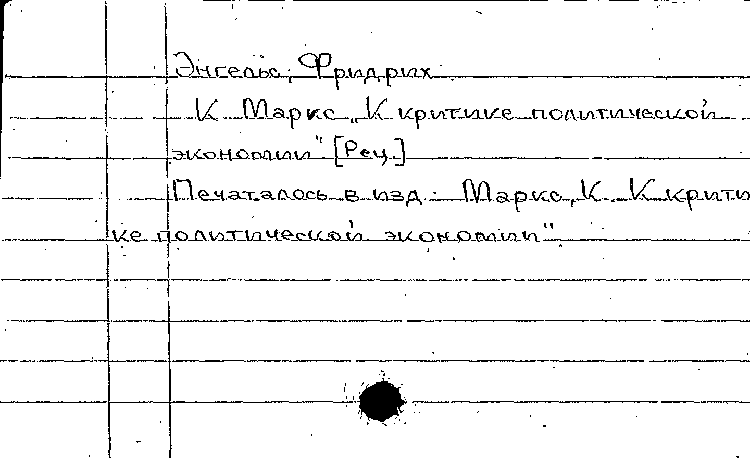 Энгельс, Фридрих.
К Маркс „К критике политической
экономии" [Рец.]
Печаталось в изд.: Маркс, К. К крити
ке политической экономии".